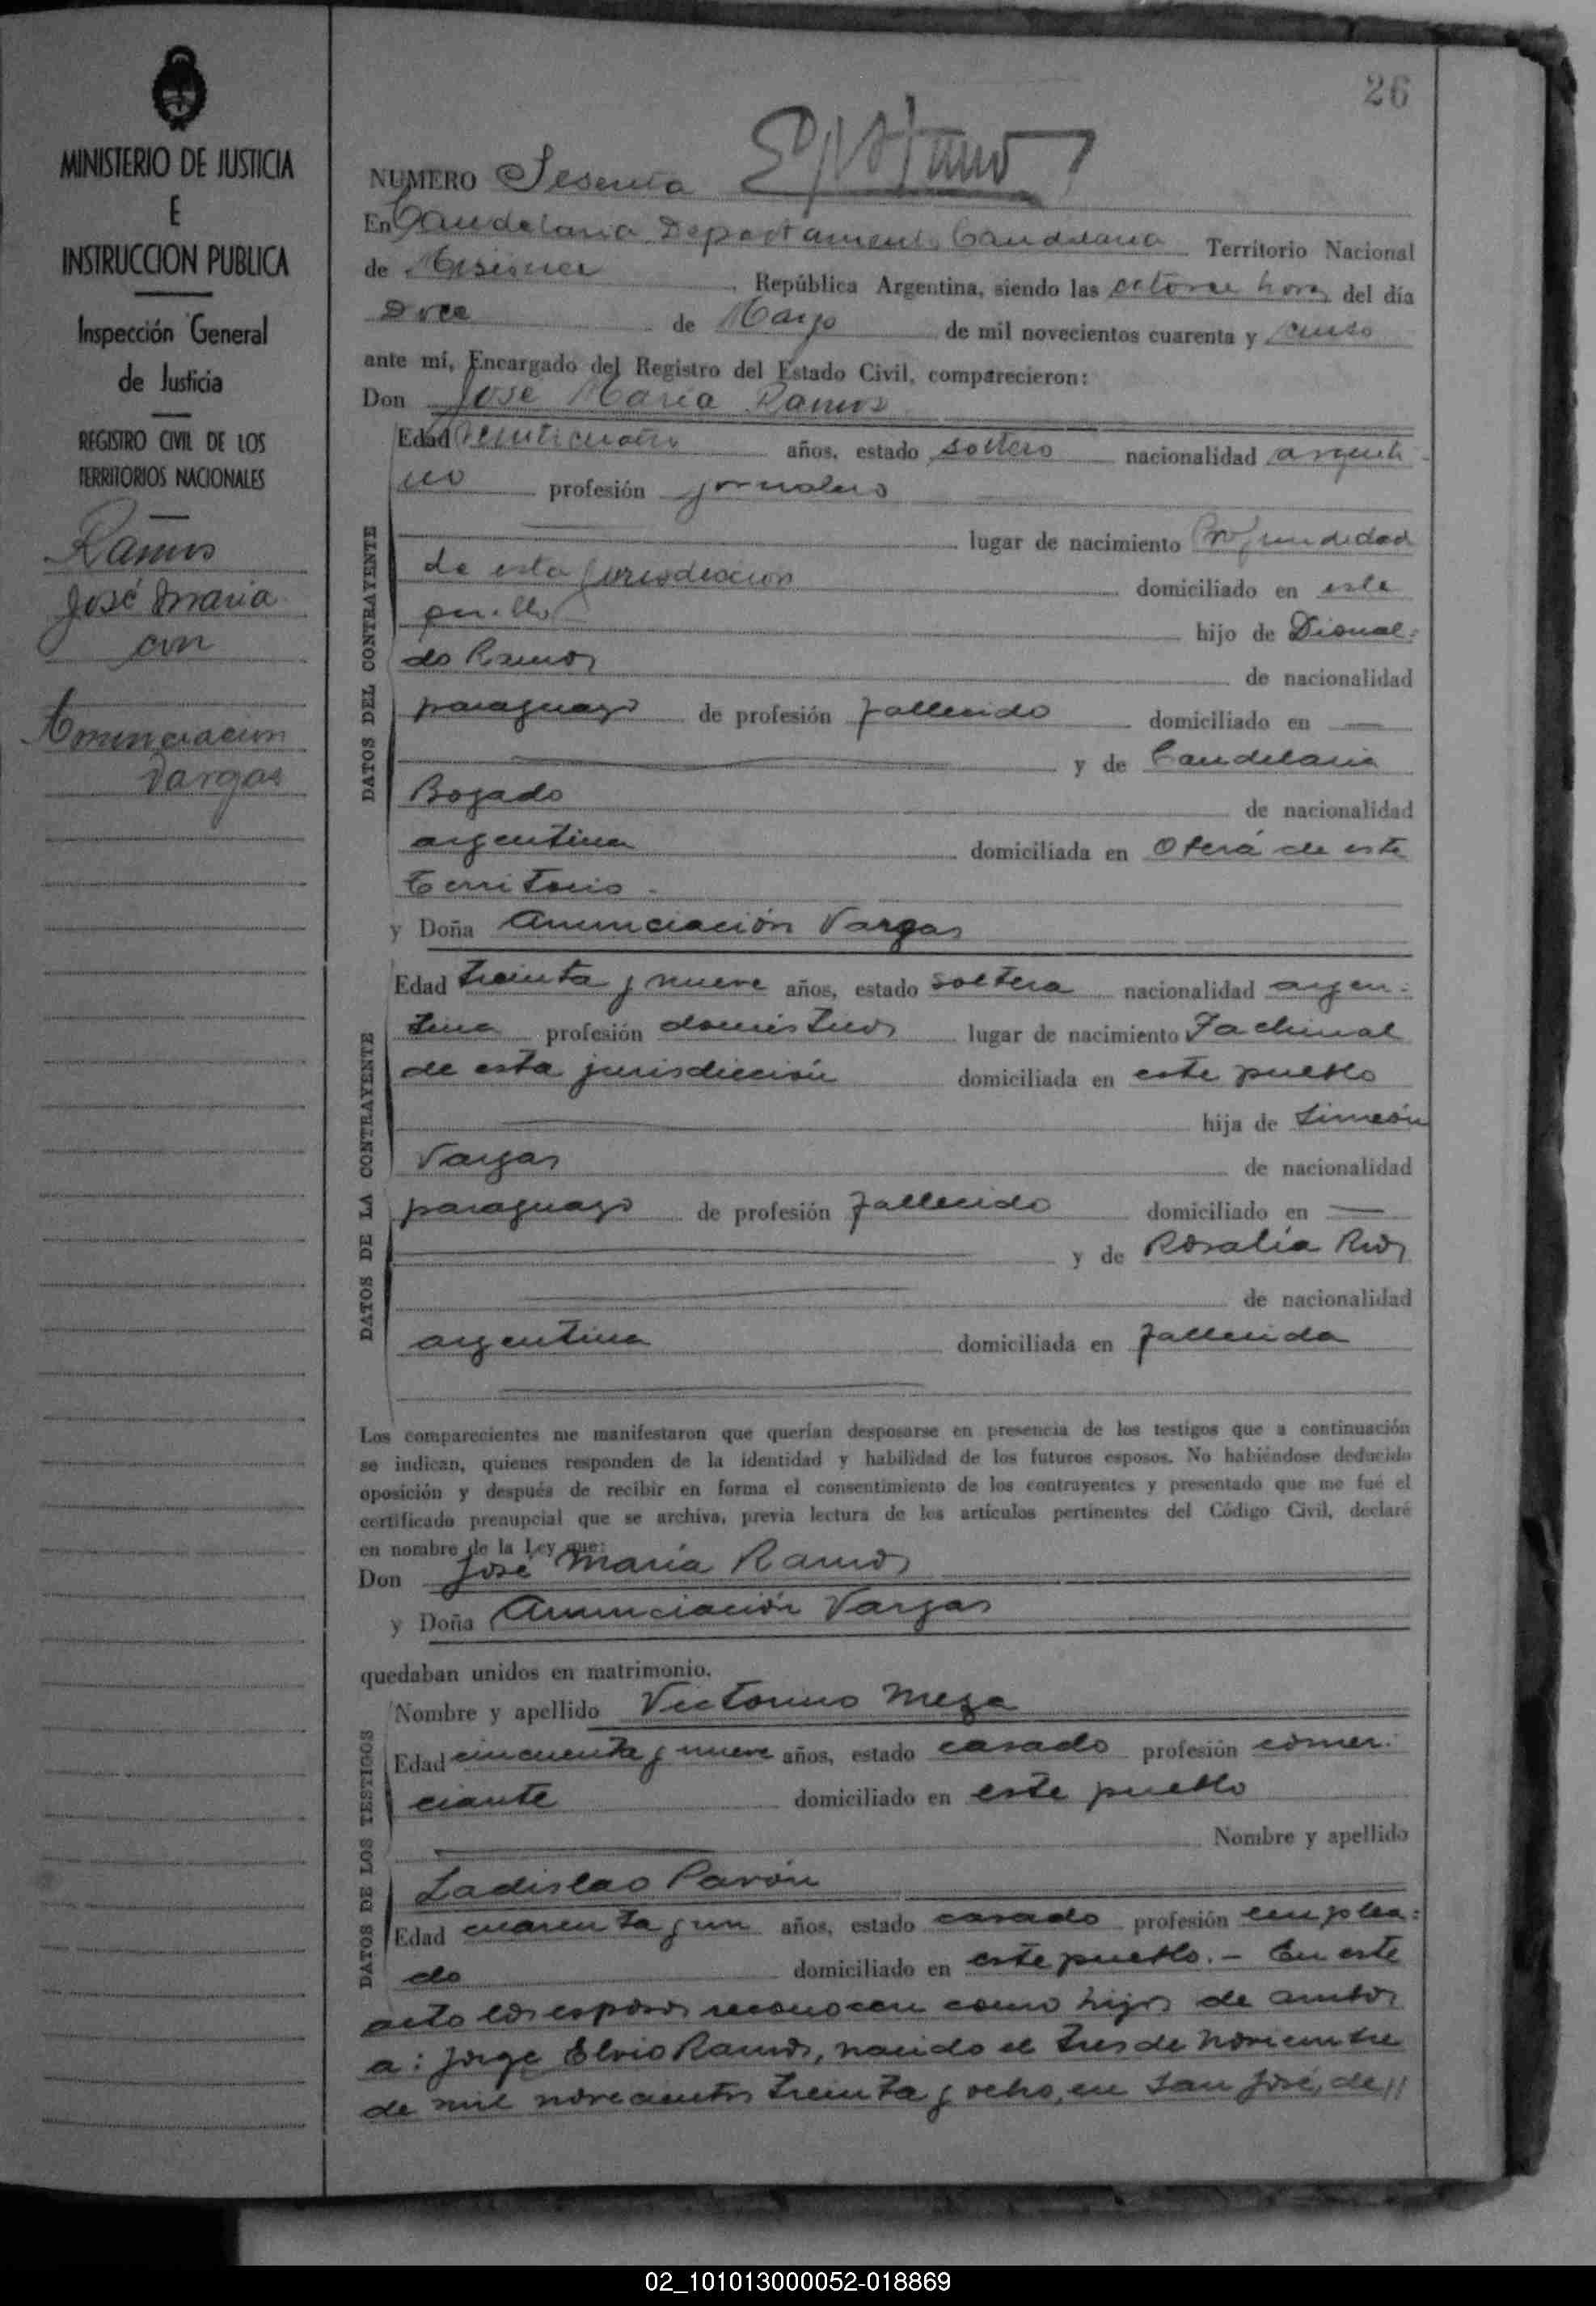 26
MINISTERIO DE JUSTICIA
E
INSTRUCCION PUBLICA
Inspección General
de Justicia
REGISTRO CIVIL DE LOS
TERRITORIOS NACIONALES
Ramos
José Maria
con
Anunciacion
Vargas
NUMERO Sesenta
En Candelaria Departamento Candelaria Territorio Nacional
de Misiones República Argentina, siendo las catorce horas del día
Doce de Mayo de mil novecientos cuarenta y cinco
ante mí, Encargado del Registro del Estado Civil, comparecieron:
Don José María Ramos
DATOS DEL CONTRAYENTE
Edad años, estado soltero nacionalidad argenti-
no profesión jornalero
lugar de nacimiento Profundidad
de esta jurisdiccion domiciliado en este
pueblo hijo de
do Ramos de nacionalidad
paraguayo de profesión fallecido domiciliado en —
y de Candelaria
Bogado de nacionalidad
argentina domiciliada en Oberá de este
territorio.
y Doña Anunciación Vargas
DATOS DE LA CONTRAYENTE
Edad treinta y nueve años, estado soltera nacionalidad argen-
tina profesión domésticos lugar de nacimiento Fachinal
de esta jurisdicción domiciliada en este pueblo
hija de Simeón
Vargas de nacionalidad
paraguayo de profesión fallecido domiciliado en —
y de Rosalía Rios
de nacionalidad
argentina domiciliada en fallecida
Los comparecientes me manifestaron que querían desposarse en presencia de los testigos que a continuación
se indican, quienes responden de la identidad y habilidad de los futuros esposos. No habiéndose deducido
oposición y después de recibir en forma el consentimiento de los contrayentes y presentado que me fué el
certificado prenupcial que se archiva, previa lectura de los artículos pertinentes del Código Civil, declaré
en nombre de la Ley que:
Don José María Ramos
y Doña Anunciación Vargas
quedaban unidos en matrimonio.
DATOS DE LOS TESTIGOS
Nombre y apellido Victorino Meza
Edad cincuenta y nueve años, estado casado profesión comer-
ciante domiciliado en este pueblo
Nombre y apellido
Ladislao Pavón
Edad cuarenta y un años, estado casado profesión emplea-
do domiciliado en este pueblo.- En este
acto los esposos reconocen como hijos de ambos
a: Jorge Elvio Ramos, nacido el tres de noviembre
de mil novecientos treinta y ocho, en San José, de//
02_101013000052-018869